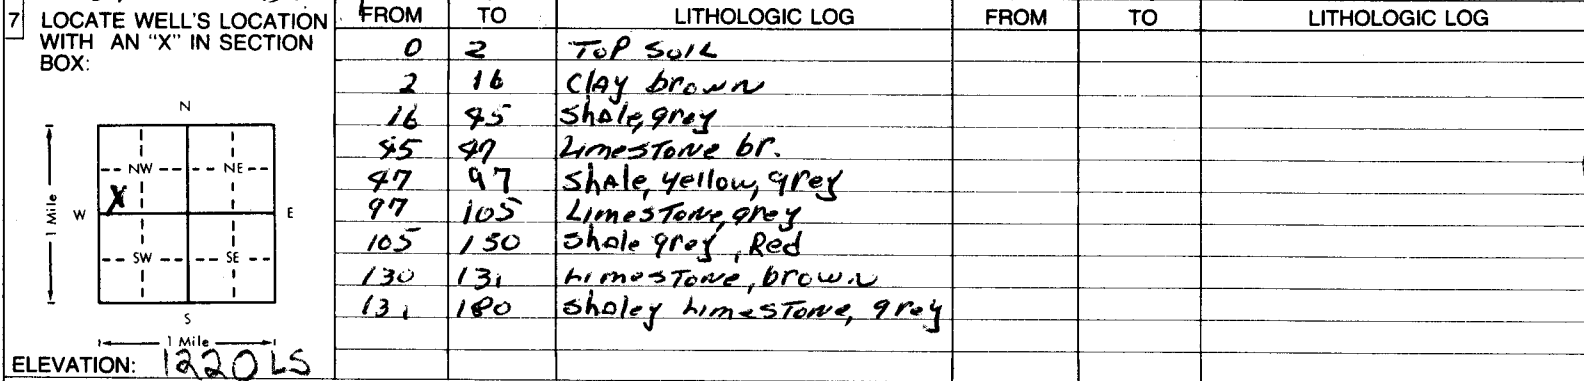 7 LOCATE WELL'S LOCATION WITH AN "X" IN SECTION BOX:
N
NW NE
X
W E
1 Mile
SW SE
S
1 Mile
ELEVATION: 1220 LS
FROM TO LITHOLOGIC LOG FROM TO LITHOLOGIC LOG
0 2 TOP SOIL
2 16 Clay brown
16 45 Shale, grey
45 47 Limestone br.
47 97 Shale, yellow, grey
97 105 Limestone, grey
105 130 Shale grey, Red
130 131 Limestone, brown
131 180 Shaley Limestone, grey